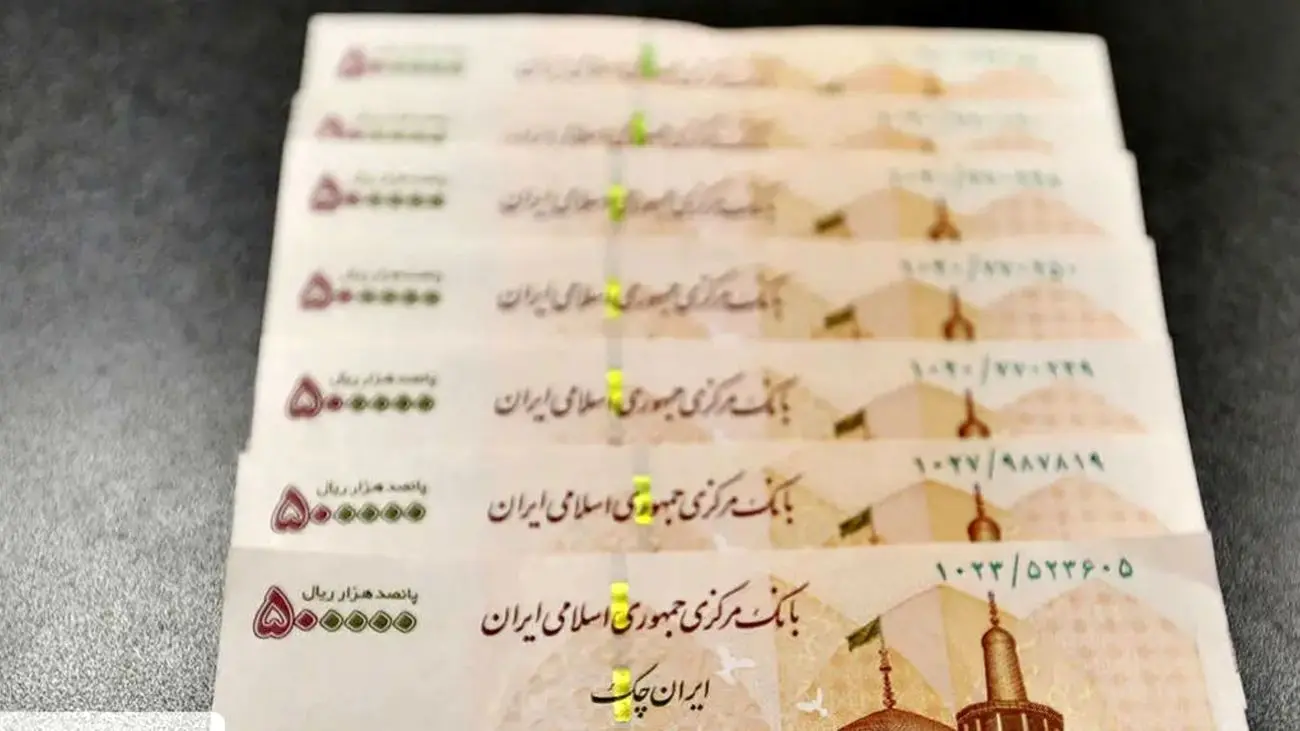 ۵۰۰۰۰۰
بانک مرکزی جمهوری اسلامی ایران
پانصد هزار ریال
۵۰۰۰۰۰
بانک مرکزی جمهوری اسلامی ایران
پانصد هزار ریال
۵۰۰۰۰۰
بانک مرکزی جمهوری اسلامی ایران
۱۰۲۰/۷۷۰۲۳۹
پانصد هزار ریال
۵۰۰۰۰۰
بانک مرکزی جمهوری اسلامی ایران
۱۰۲۷/۹۸۷۸۱۹
پانصد هزار ریال
۵۰۰۰۰۰
بانک مرکزی جمهوری اسلامی ایران
۱۰۲۳/۵۲۳۶۰۵
پانصد هزار ریال
۵۰۰۰۰۰
بانک مرکزی جمهوری اسلامی ایران
ایران چک